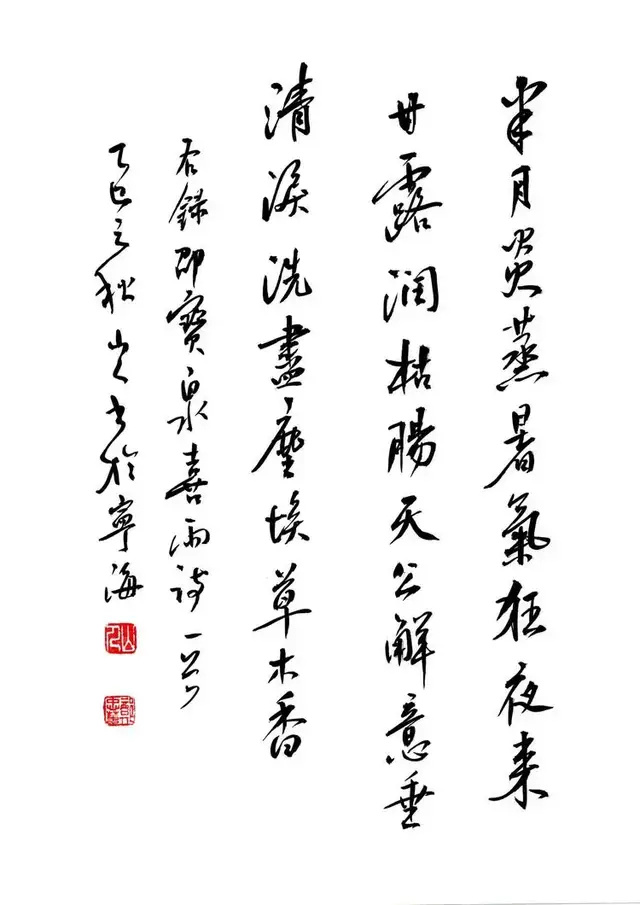 半月炎蒸暑氣狂夜来
甘露润枯腸天公解意垂
清淚洗盡塵埃草木香
右録邵寶泉喜雨诗一首
乙巳之秋山人书於寧海
山人